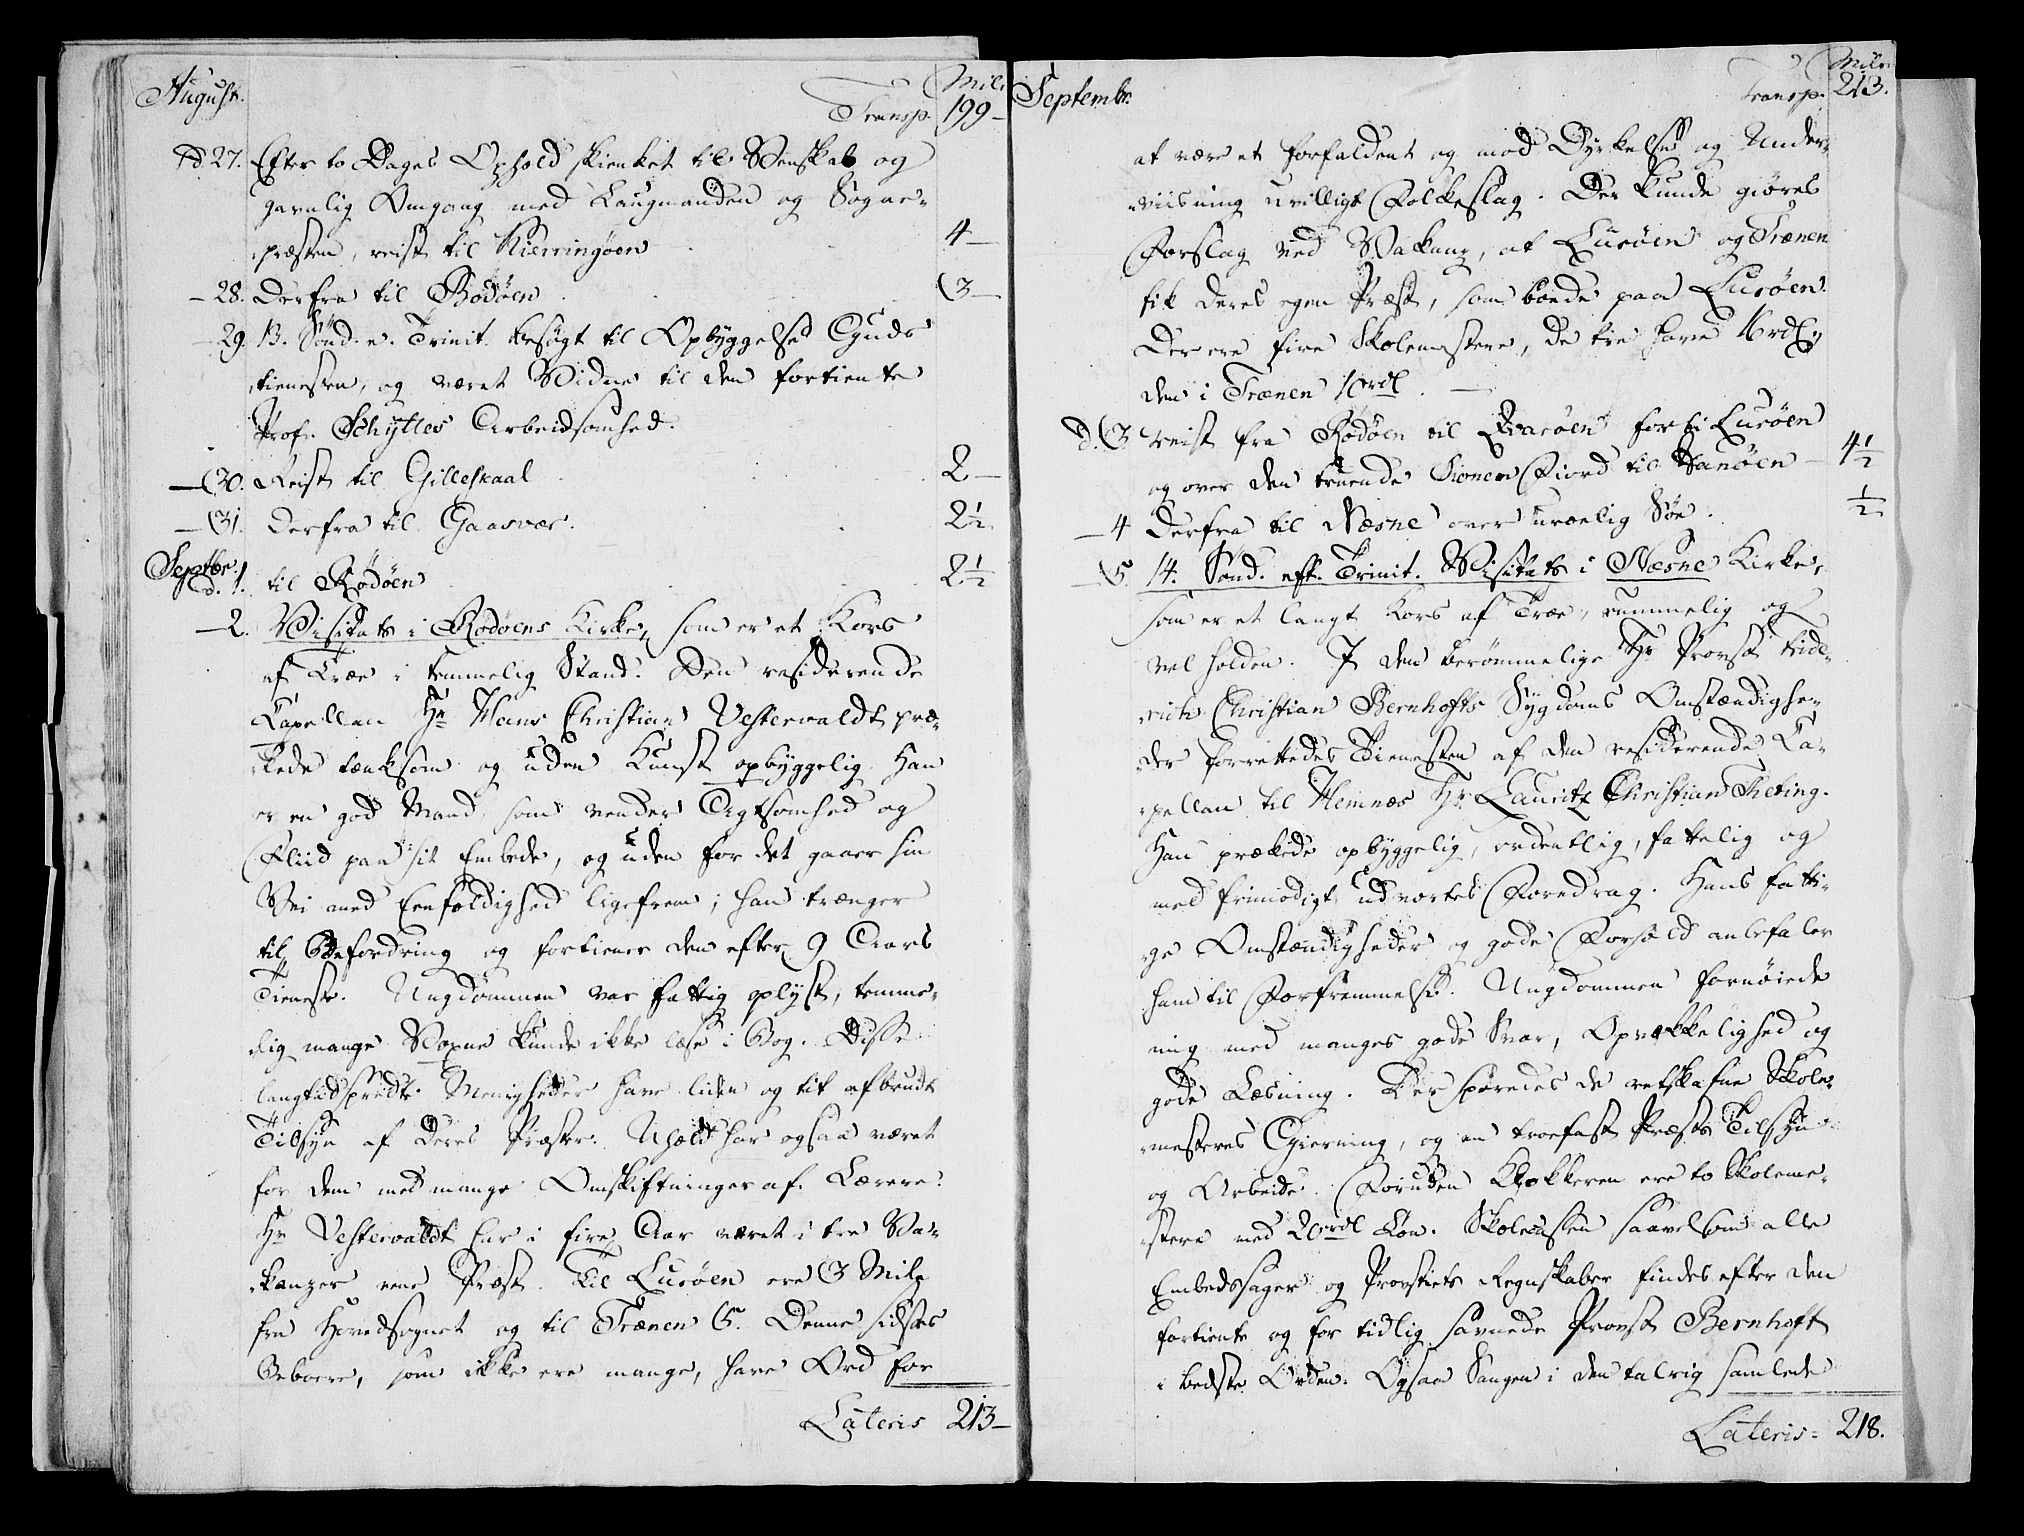 August.
Mil.
Transp. 199 –
d. 27. Efter to Dages Ophold skienket til Venskab og
gavnlig Omgang med Laugmanden og Sogne-
præsten, reist til Kierringøen 4 –
– 28. Derfra til Bodøen 3 –
29. 13. Sönd. e. Trinit. besøgt til Opbyggelse Guds-
tienesten, og været Vidne til den fortiente
Prof. Schyttes Arbeidsomhed.
– 30. Reist til Gilleskaal 2 –
– 31. derfra til Gaasvær. 2½
Septbr.
d. 1. til Rødøen 2½
– 2. Visitats i Rødøens Kirke, som er et Kors
af Træe i temmelig Stand. Den residerende
Capellan Hr Hans Christian Vesterwaldt præ-
kede tænksom og uden Kunst opbyggelig. Han
er en god Mand, som vender Agtsomhed og
Fliid paa sit Embede, og uden for det gaaer sin
Vei med Eenfoldighed ligefrem; han trænger
til Befordring og fortiener den efter 9 Aars
Tieneste. Ungdommen var fattig oplyst, temme-
lig mange Voxne kunde ikke læse i Bog. Disse
langtadspredte Menigheder have liden og tit afbrudt
Tilsyn af deres Præster. Uheld har ogsaa været
for dem med mange Omskiftninger af Lærere.
Hr Vesterwaldt har i fire Aar været i tre Va-
kanzer ene Præst. Til Lurøen ere 3 Mile
fra Hovedsognet og til Trænen 5. Denne sidstes
Beboere, som ikke ere mange, have Ord for
Lateris 213 –
Septembr.
Mile
Transp. 213.
at være et forfaldent og mod Dyrkelse og Under-
viisning uvilligt Folkeslag. Der kunde giøres
Forslag ved Vakanz, at Lurøen og Trænen
fik deres egen Præst, som boede paa Lurøen.
Der ere fire Skolemestere, de tre have 16 rdl.,
den i Trænen 10 rdl.
d. 3 reist fra Rødøen til Qvarøen forbi Lurøen
og over den truende Sionen Fiord til Hanøen – 4½
– 4 Derfra til Næsne over urolig Søe. ½
– 5. 14. Sönd. eft. Trinit. Visitats i Næsne Kirke,
som er et langt Kors af Træe, rummelig og
vel holden. I den berømmelige Hr Provst Fride-
rich Christian Bernhofts Sygdoms Omstændighe-
der forrettedes Tienesten af den residerende Ca-
pellan til Hemnæs Hr Lauritz Christian Fieting.
Han prækede opbyggelig, ordentlig, fattelig og
med frimodigt udvortes Foredrag. Hans fatti-
ge Omstændigheder og gode Forhold anbefaler
ham til Forfremmelse. Ungdommen fornøiede
mig med manges gode Svar, Opvækkelighed og
gode Læsning. Der sporedes de retskafne Skole-
mesteres Gierning, og en troefast Præsts Tilsyn
og Arbeide. Foruden Klokkeren ere to Skoleme-
stere med 20 rdl Løn. Skolecassen saavelsom alle
Embedssager og Provstiets Regnskaber findes efter den
fortiente og for tidlig savnede Provst Bernhoft
i bedste Orden. Ogsaa Sangen i den talrig samlede
Lateris = 218.